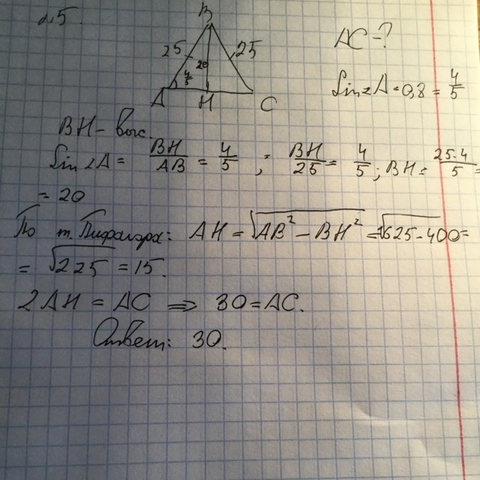 2.5.
B
25 20 25
4/5
A H C
AC-?
Sin∠A=0,8=4/5
BH- выс.
Sin∠A= BH/AB = 4/5 ; BH/25 = 4/5 ; BH= 25·4/5 =
= 20
По т. Пифагора: AH = √AB²-BH² = √625-400 =
= √225 = 15.
2AH = AC ⇒ 30=AC.
Ответ: 30.